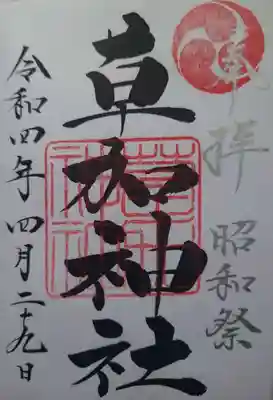 奉拝
昭和祭
草加神社
草加神社
令和四年四月二十九日